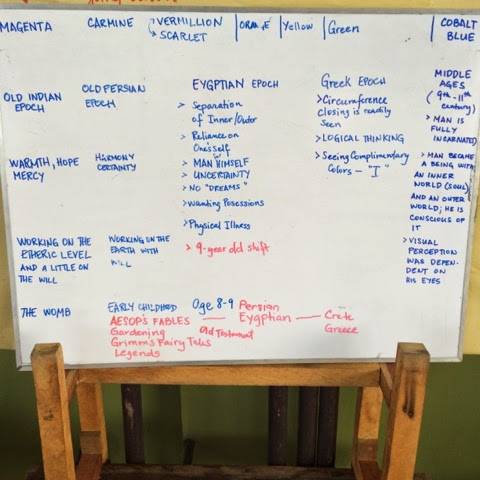 MAGENTA
CARMINE
VERMILLION
SCARLET
ORANGE
Yellow
Green
COBALT
BLUE
OLD INDIAN
EPOCH
OLD PERSIAN
EPOCH
EYGPTIAN EPOCH
> Separation
of Inner/Outer
> Reliance on
One'self
> MAN HIMSELF
> UNCERTAINTY
> NO "DREAMS"
> Wanting Posessions
> Physical Illness
> 9-year old shift
Greek EPOCH
> Circumference
closing is readily
seen
> LOGICAL THINKING
> Seeing Complimentary
Colors - "I"
MIDDLE
AGES
(9th-11th
century)
> MAN IS
FULLY
INCARNATED
> MAN BECAME
A BEING WITH
AN INNER
WORLD (SOUL)
AND AN OUTER
WORLD; HE IS
CONSCIOUS OF
IT
> VISUAL
PERCEPTION
WAS DEPEN-
DENT ON
HIS EYES
WARMTH, HOPE
MERCY
HARMONY
CERTAINTY
WORKING ON THE
ETHERIC LEVEL
AND A LITTLE ON
THE WILL
WORKING ON THE
EARTH WITH
WILL
THE WOMB
EARLY CHILDHOOD
AESOP'S FABLES
Gardening
Grimm's Fairy Tales
Legends
Age 8-9
Old Testament
Persian
Eygptian
Crete
Greece